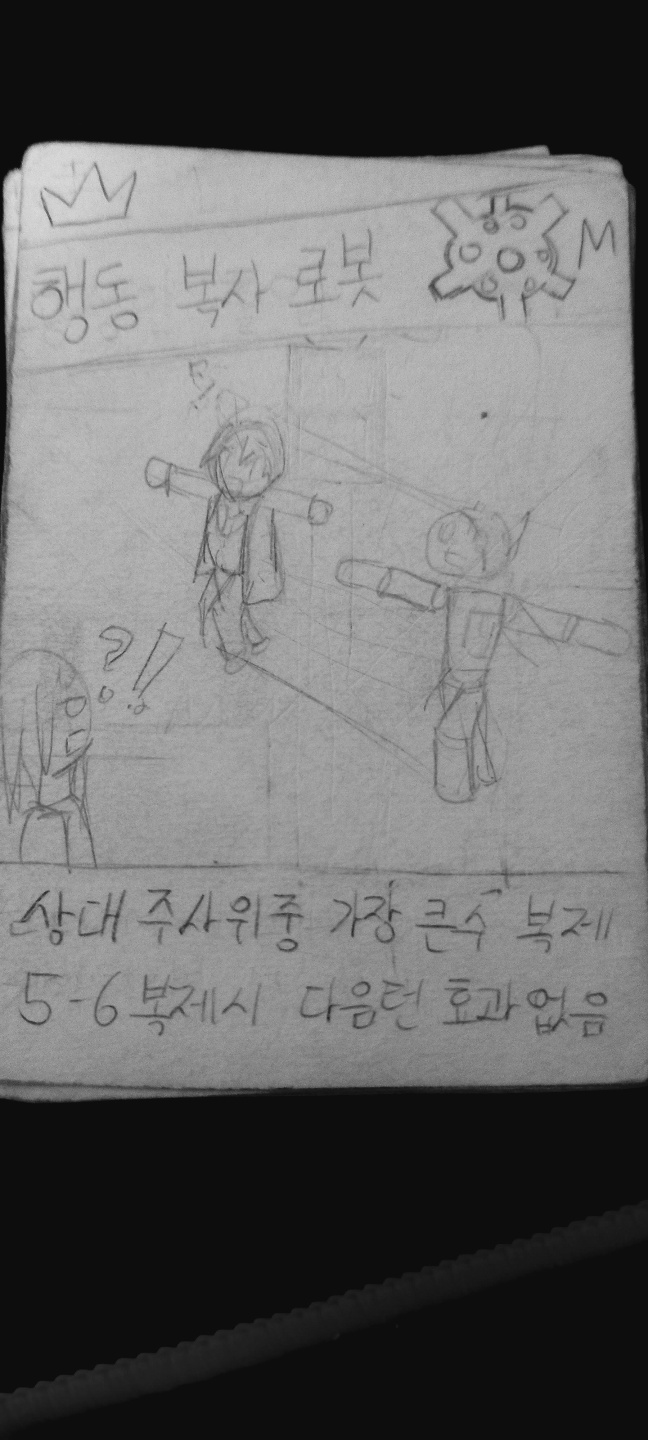 행동 복사 로봇
M
?!
상대 주사위중 가장 큰수 복제
5-6 복제시 다음턴 효과없음